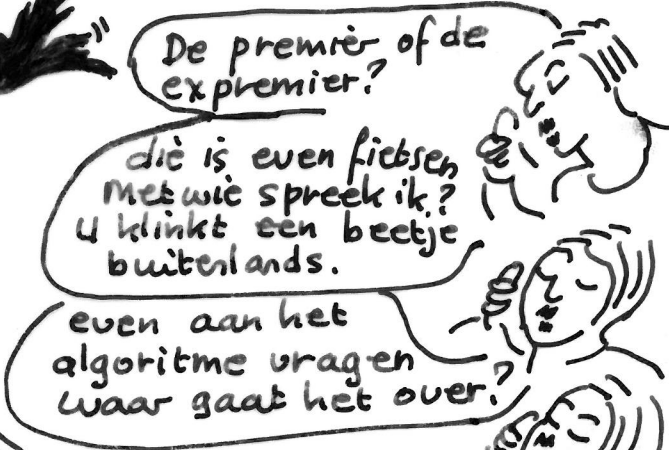 De premier of de
expremier?
die is even fietsen
Met wie spreek ik?
u klinkt een beetje
buitenlands.
even aan het
algoritme vragen
waar gaat het over?